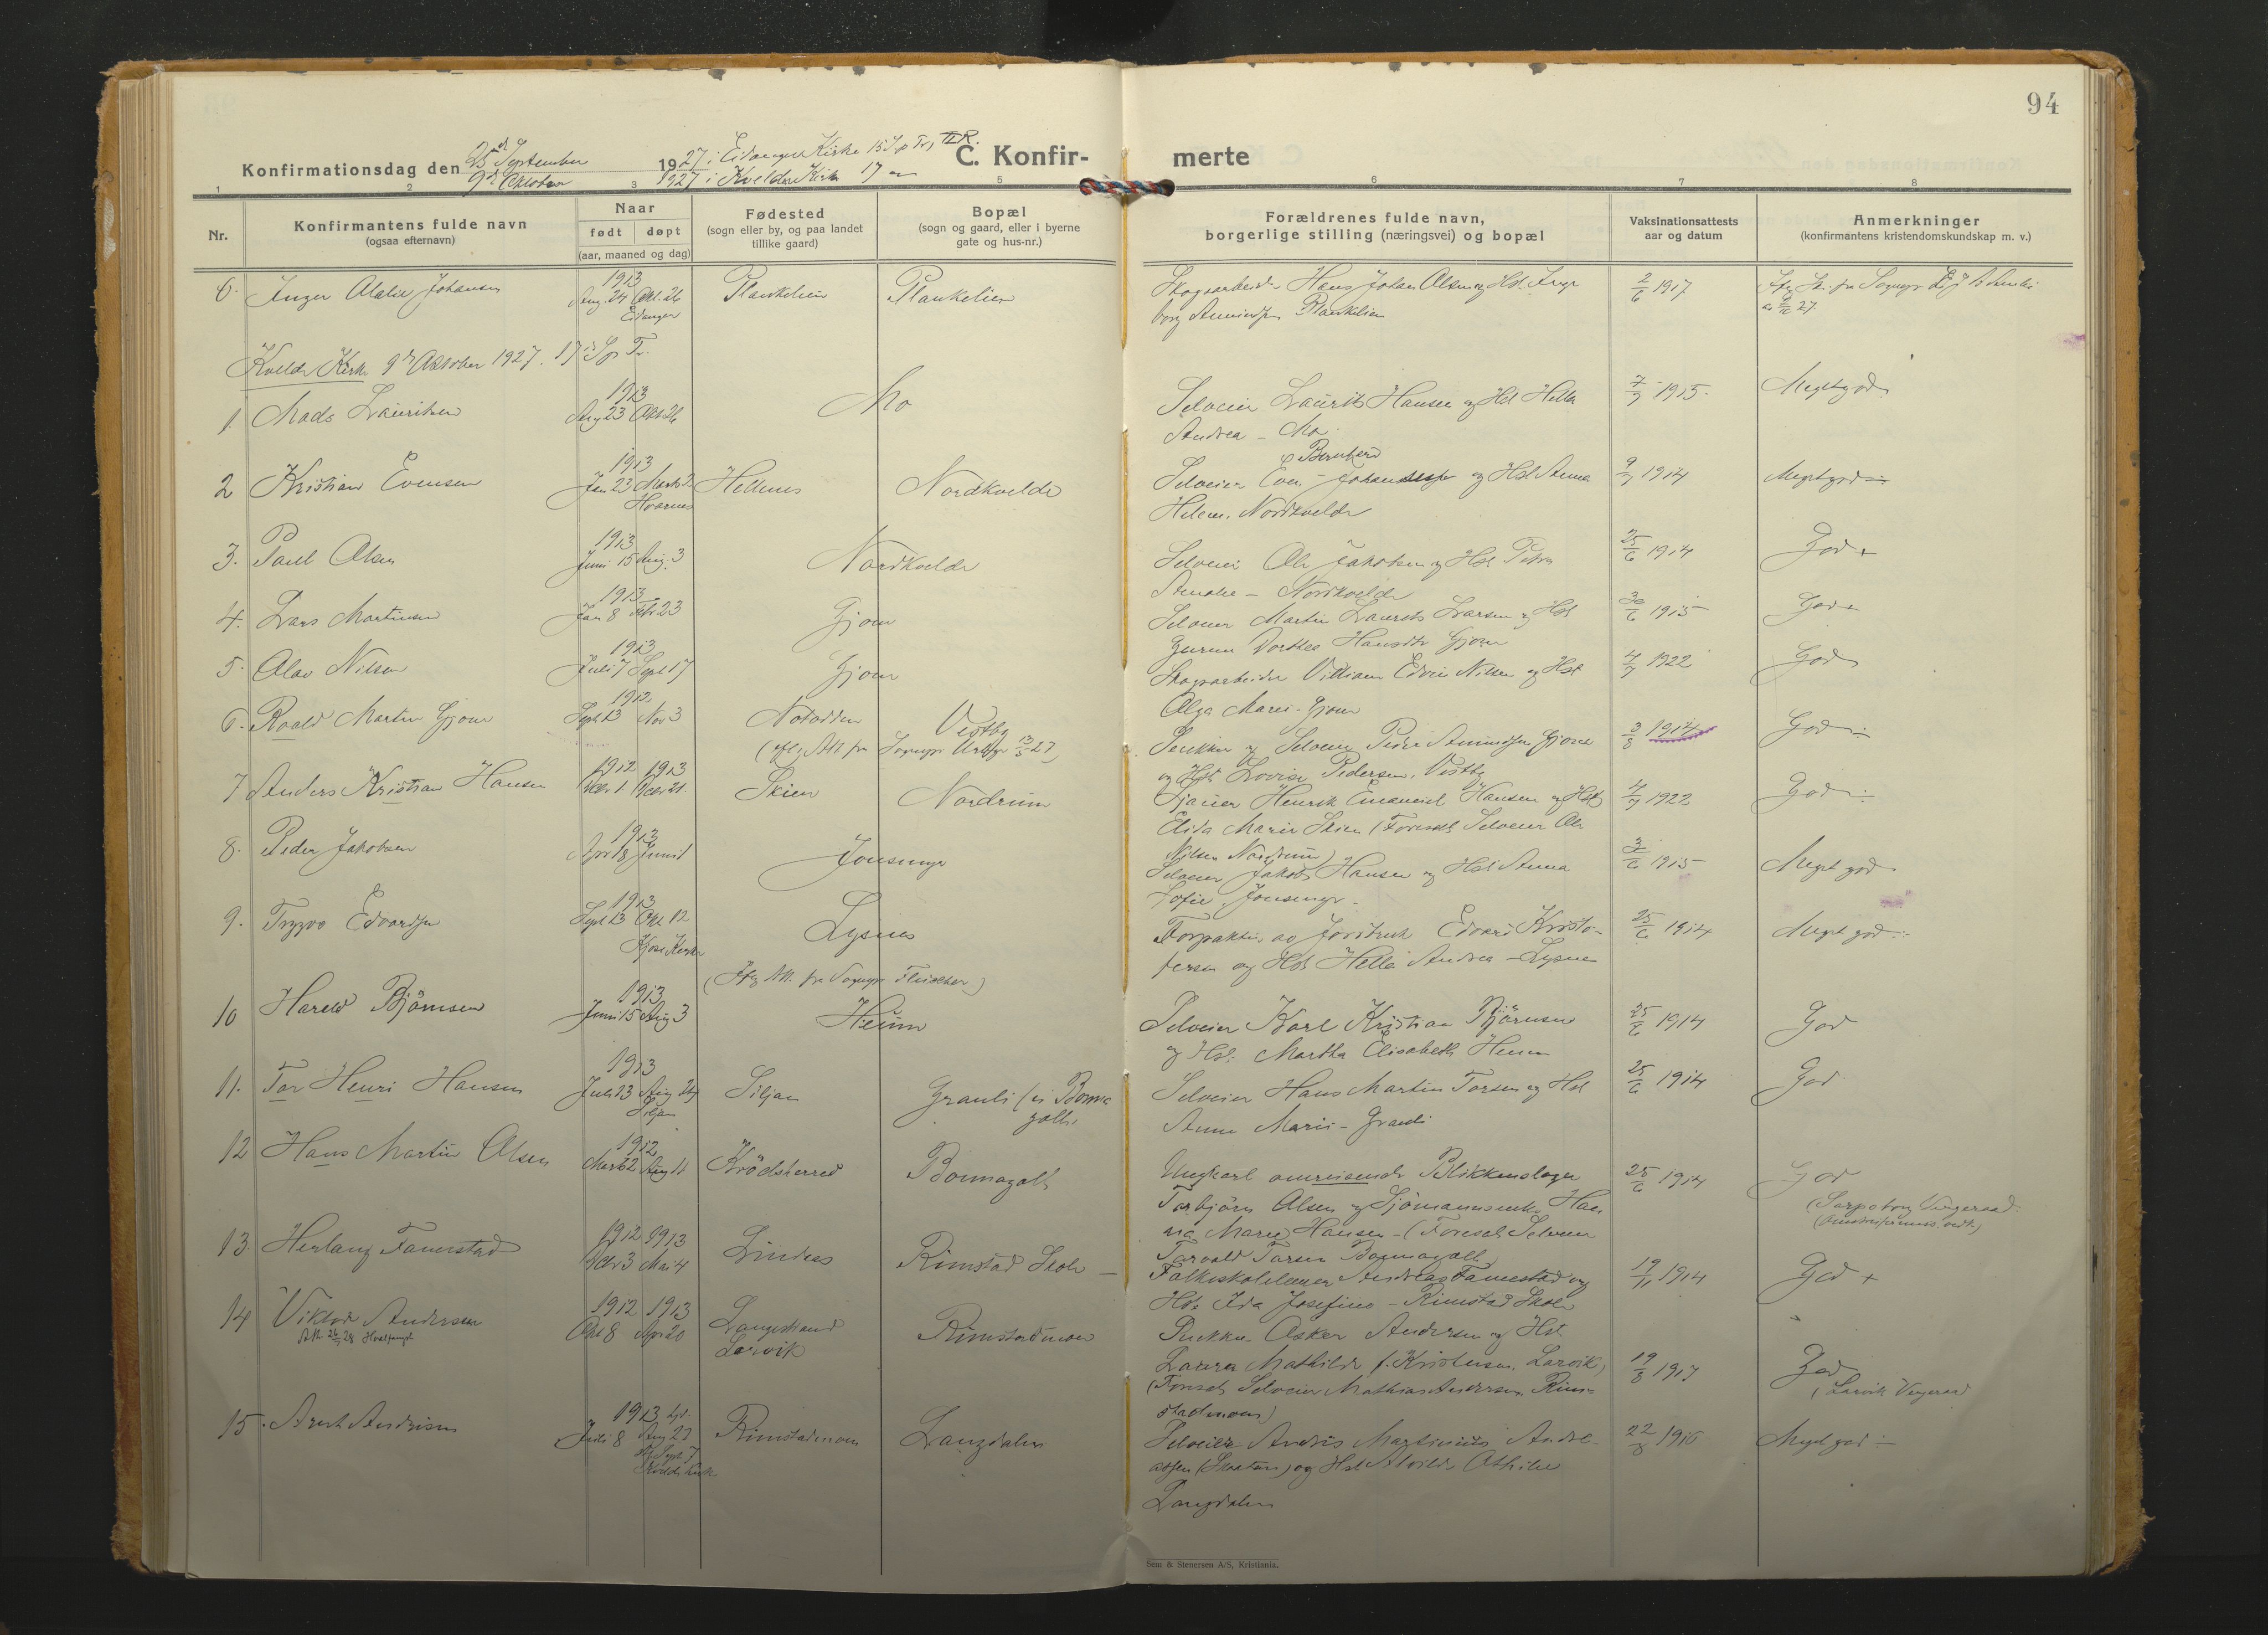 94
Konfirmationsdag den 25de September 1927 i Eidanger Kirke 15 S e Tr, II R. C. Konfir- merte
9de Oktober 1927 i Kvelde Kirke 17
1 2 3 5 6 7 8
Nr.
Konfirmantens fulde navn
(ogsaa efternavn)
Naar
født døpt
(aar, maaned og dag)
Fødested
(sogn eller by, og paa landet
tillike gaard)
Bopæl
(sogn og gaard, eller i byerne
gate og hus-nr.)
Forældrenes fulde navn,
borgerlige stilling (næringsvei) og bopæl
Vaksinationsattests
aar og datum
Anmerkninger
(konfirmantens kristendomskundskap m. v.)
6. Inger Johansen 1913 Aug. 24 Okt. 26 Eidanger Plankelien Plankelien
Skogsarbeider Hans Johan Olsen og Hst Inge
borg Plankelien
2/6 1917
Kvelde Kirke 9de Oktober 1927. 17de S e Tr.
1. Mads Lauritsen 1913 Aug 23 Okt 26 Mo
Selveier Laurits Hansen og Hst Hella
Andrea - Mo
7/9 1915. Meget god
2 Kristian Evensen 1913 Jan 23 Marts 2 Hvarnes Hellenes Nordkvelde
Selveier Even og Hst Anna
Helene. Nordkvelde
9/7 1914 Meget god -
3. Paul Olsen 1913 Juni 15 Aug. 3 Nordkvelde
Selveier Ole Jakobsen og Hst Petra
Amalie - Nordkvelde
25/6 1914 God +
4. Lars Martinsen 1913 Jan 8 Febr 23 Gjone
Selveier Martin Laurits Larsen og Hst
Gurine Dorthea Hansdtr Gjone
30/6 1915 God +
5. Olav Nilsen 1913 Juli 7 Sept 17 Gjone
Skogsarbeider William Edvin Nilsen og Hst
Olga Marie - Gjone
4/7 1922 God
6. Roald Martin Gjone 1912 Sept 13 Nov 3 Notodden Vestby
13/5 27)
og Selveier Peder Amundsen Gjone
og Hst Lovise Pedersen, Vestby
3/8 1914 God -
7 Anders Kristian Hansen 1912 1913 Decbr 1 Decbr 21. Skien Nordrum
Sjauer Henrik Emanuel Hansen og Hst
Elida Marie Skien (Foresat Selveier Ole
Nilsen Nordrum)
4/7 1922 God -
8. Peder Jakobsen 1913 Apr 18 Juni 1 Jonsmyr
Selveier Jakob Hansen og Hst Anna
Sofie. Jonsmyr -
3/6 1915 Meget god
9. Trygve Edvardsen 1913 Sept 13 Okt 12 Kjose Kirke Lysnes
Forpakter av Jordbruk Edvard Kristo-
fersen og Hst Hella Andrea - Lysnes
25/6 1914 Meget god -
10 Harald Bjørnsen 1913 Juni 15 Aug 3 Heum
Selveier Karl Kristian Bjørnsen
og Hst. Martha Elisabeth Heum
25/6 1914 God
11. Tor Henri Hansen 1913 Juli 13 Aug 24 Siljan Siljan Grauli
Selveier Hans Martin Torsen og Hst
Anne Marie - Grauli
25/6 1914 God
12 Hans Martin Olsen 1912 Marts 2 Aug 11 Krødsherred Bonnagolt
Ungkarl omreisende Blikkenslager
Torbjørn Olsen og Sjømannsenke Han
na Marie Hansen - (Foresat Selveier
Torvald Torsen Bonnagolt
25/6 1914 God
(Sarpsborg Vergeraad.
13. Herlaug Famestad 1912 1913 Decbr 3 Mai 4 Lindaas Rimstad Skole -
Folkeskolelærer Andreas Famestad og
Hst. Ida Josefine - Rimstad Skole
19/11 1914 God +
14 Viktor Andersen 1912 1913 Okt 8 Apr 20 Langestrand Larvik Rimstadmoen
Att. 26/3 28 Hvalfangst
Snekker Oskar Andersen og Hst
Laura Mathilde f. Kristensen. Larvik,
(Foresat Selveier Mathias Andersen Rim-
stadmoen)
19/8 1917 God
(Larvik Vergeraad
15. Arent Andrisen 1913 Juli 8 Aug 27 Sept 7 Kvelde Kirke Rimstadmoen Langdalen
Selveier Andris Martinius Andre-
assen og Hst Alvilde Othilie
Langdalen
22/8 1916 Meget god -
Sem & Stenersen A/S, Kristiania.